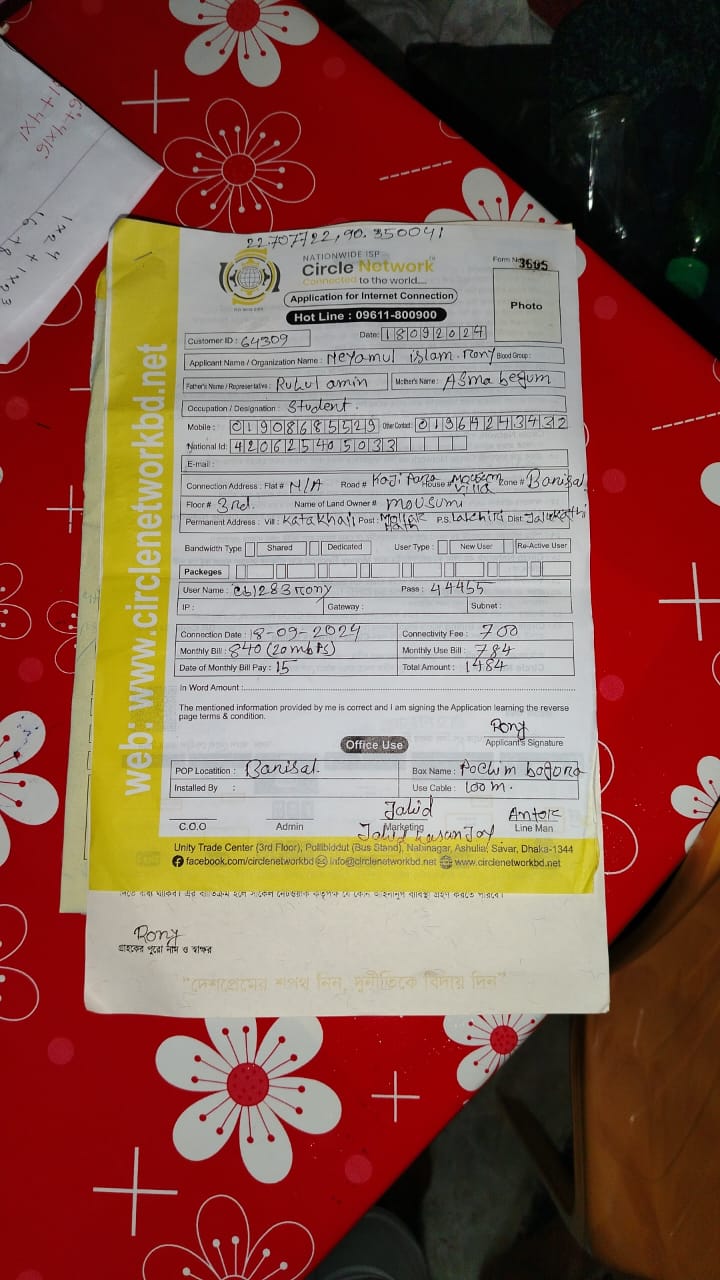 22.707722, 90.350041
NATIONWIDE ISP
Circle Network™
Connected to the world....
Form No 3695
Application for Internet Connection
Photo
Hot Line : 09611-800900
Customer ID : 64309 Date: 18092024
Applicant Name / Organization Name : Neyamul islam. rony Blood Group :
Father's Name / Representative : Ruhul amin Mother's Name : Asma begum
Occupation / Designation : Student.
Mobile : 01908685529 Other Contact : 01964243432
National Id: 420625405033
E-mail :
Connection Address : Flat # N/A Road # Kazi Para House # Zone # Barisal
Floor # 3rd. Name of Land Owner # mousumi
Permanent Address : Vill : Katakhali Post : P.S. Dist:
Bandwidth Type Shared Dedicated User Type : New User Re-Active User
Packeges
User Name : cb1283rony Pass : 44455
IP : Gateway : Subnet :
Connection Date : 18-09-2024 Connectivity Fee : 700
Monthly Bill : 840 (20mbps) Monthly Use Bill : 784
Date of Monthly Bill Pay : 15 Total Amount : 1484
In Word Amount :
The mentioned information provided by me is correct and I am signing the Application learning the reverse
page terms & condition.
Rony
Applicant's Signature
Office Use
POP Locatition : Barisal. Box Name : Pochim bogora
Installed By : Use Cable : 100 m.
Jahid Antor
C.O.O Admin Marketing Line Man
Jahid Hasan Joy
Unity Trade Center (3rd Floor), Pollibiddut (Bus Stand), Nabinagar, Ashulia, Savar, Dhaka-1344
facebook.com/circlenetworkbd info@circlenetworkbd.net www.circlenetworkbd.net
web: www.circlenetworkbd.net
Rony
গ্রাহকের পুরো নাম ও স্বাক্ষর
"দেশপ্রেমের শপথ নিন, দুর্নীতিকে বিদায় দিন"